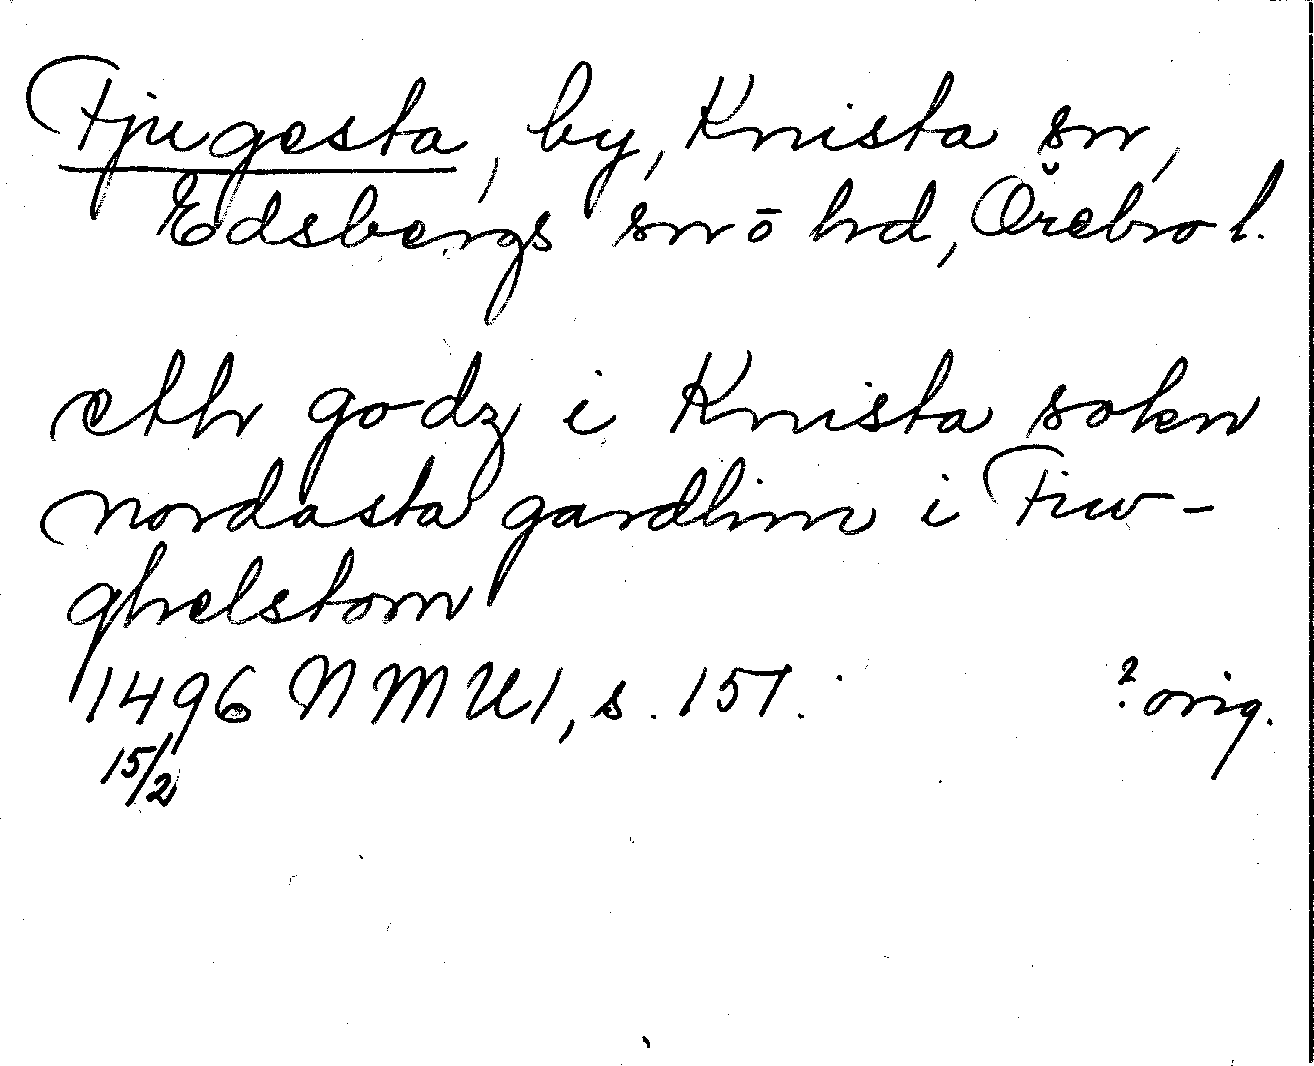 Fjugesta, by, Knista sn,
Edsbergs sn o hd, Örebro l.
eth godz i Knista sokn
nordasta gardhin i Fiw-
ghelstom
1496 NMU1, s. 151. ? orig.
15/2